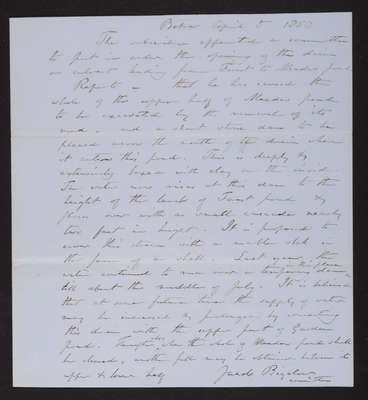 Boston April 5 1853
The subscriber appointed a committee
to put in order the opening of the drain
or culvert leading from Forest to Meadow pond
Reports - that he has caused the
whole of the upper half of Meadow pond
to be excavated by the removal of its
mud, and a short stone dam to be
placed across the mouth of the drain where
it enters this pond. This is deeply &
extensively boxed with clay on the inside.
The water now rises at this dam to the
height of the level of Forest pond &
flows over with a small cascade nearly
two feet in height. It is proposed to
cover this stream with a marble slab in
the form of a shell. Last year, the
water continued to run over a temporary dam in this place
till about the middle of July. It is believed
that at some future time the supply of water
may be increased & prolonged by connecting
this drain with the upper part of Garden
pond. Should also the whole of Meadow pond shall
be cleaned, another fall may be obtained between its
upper & lower half
Jacob Bigelow
committee